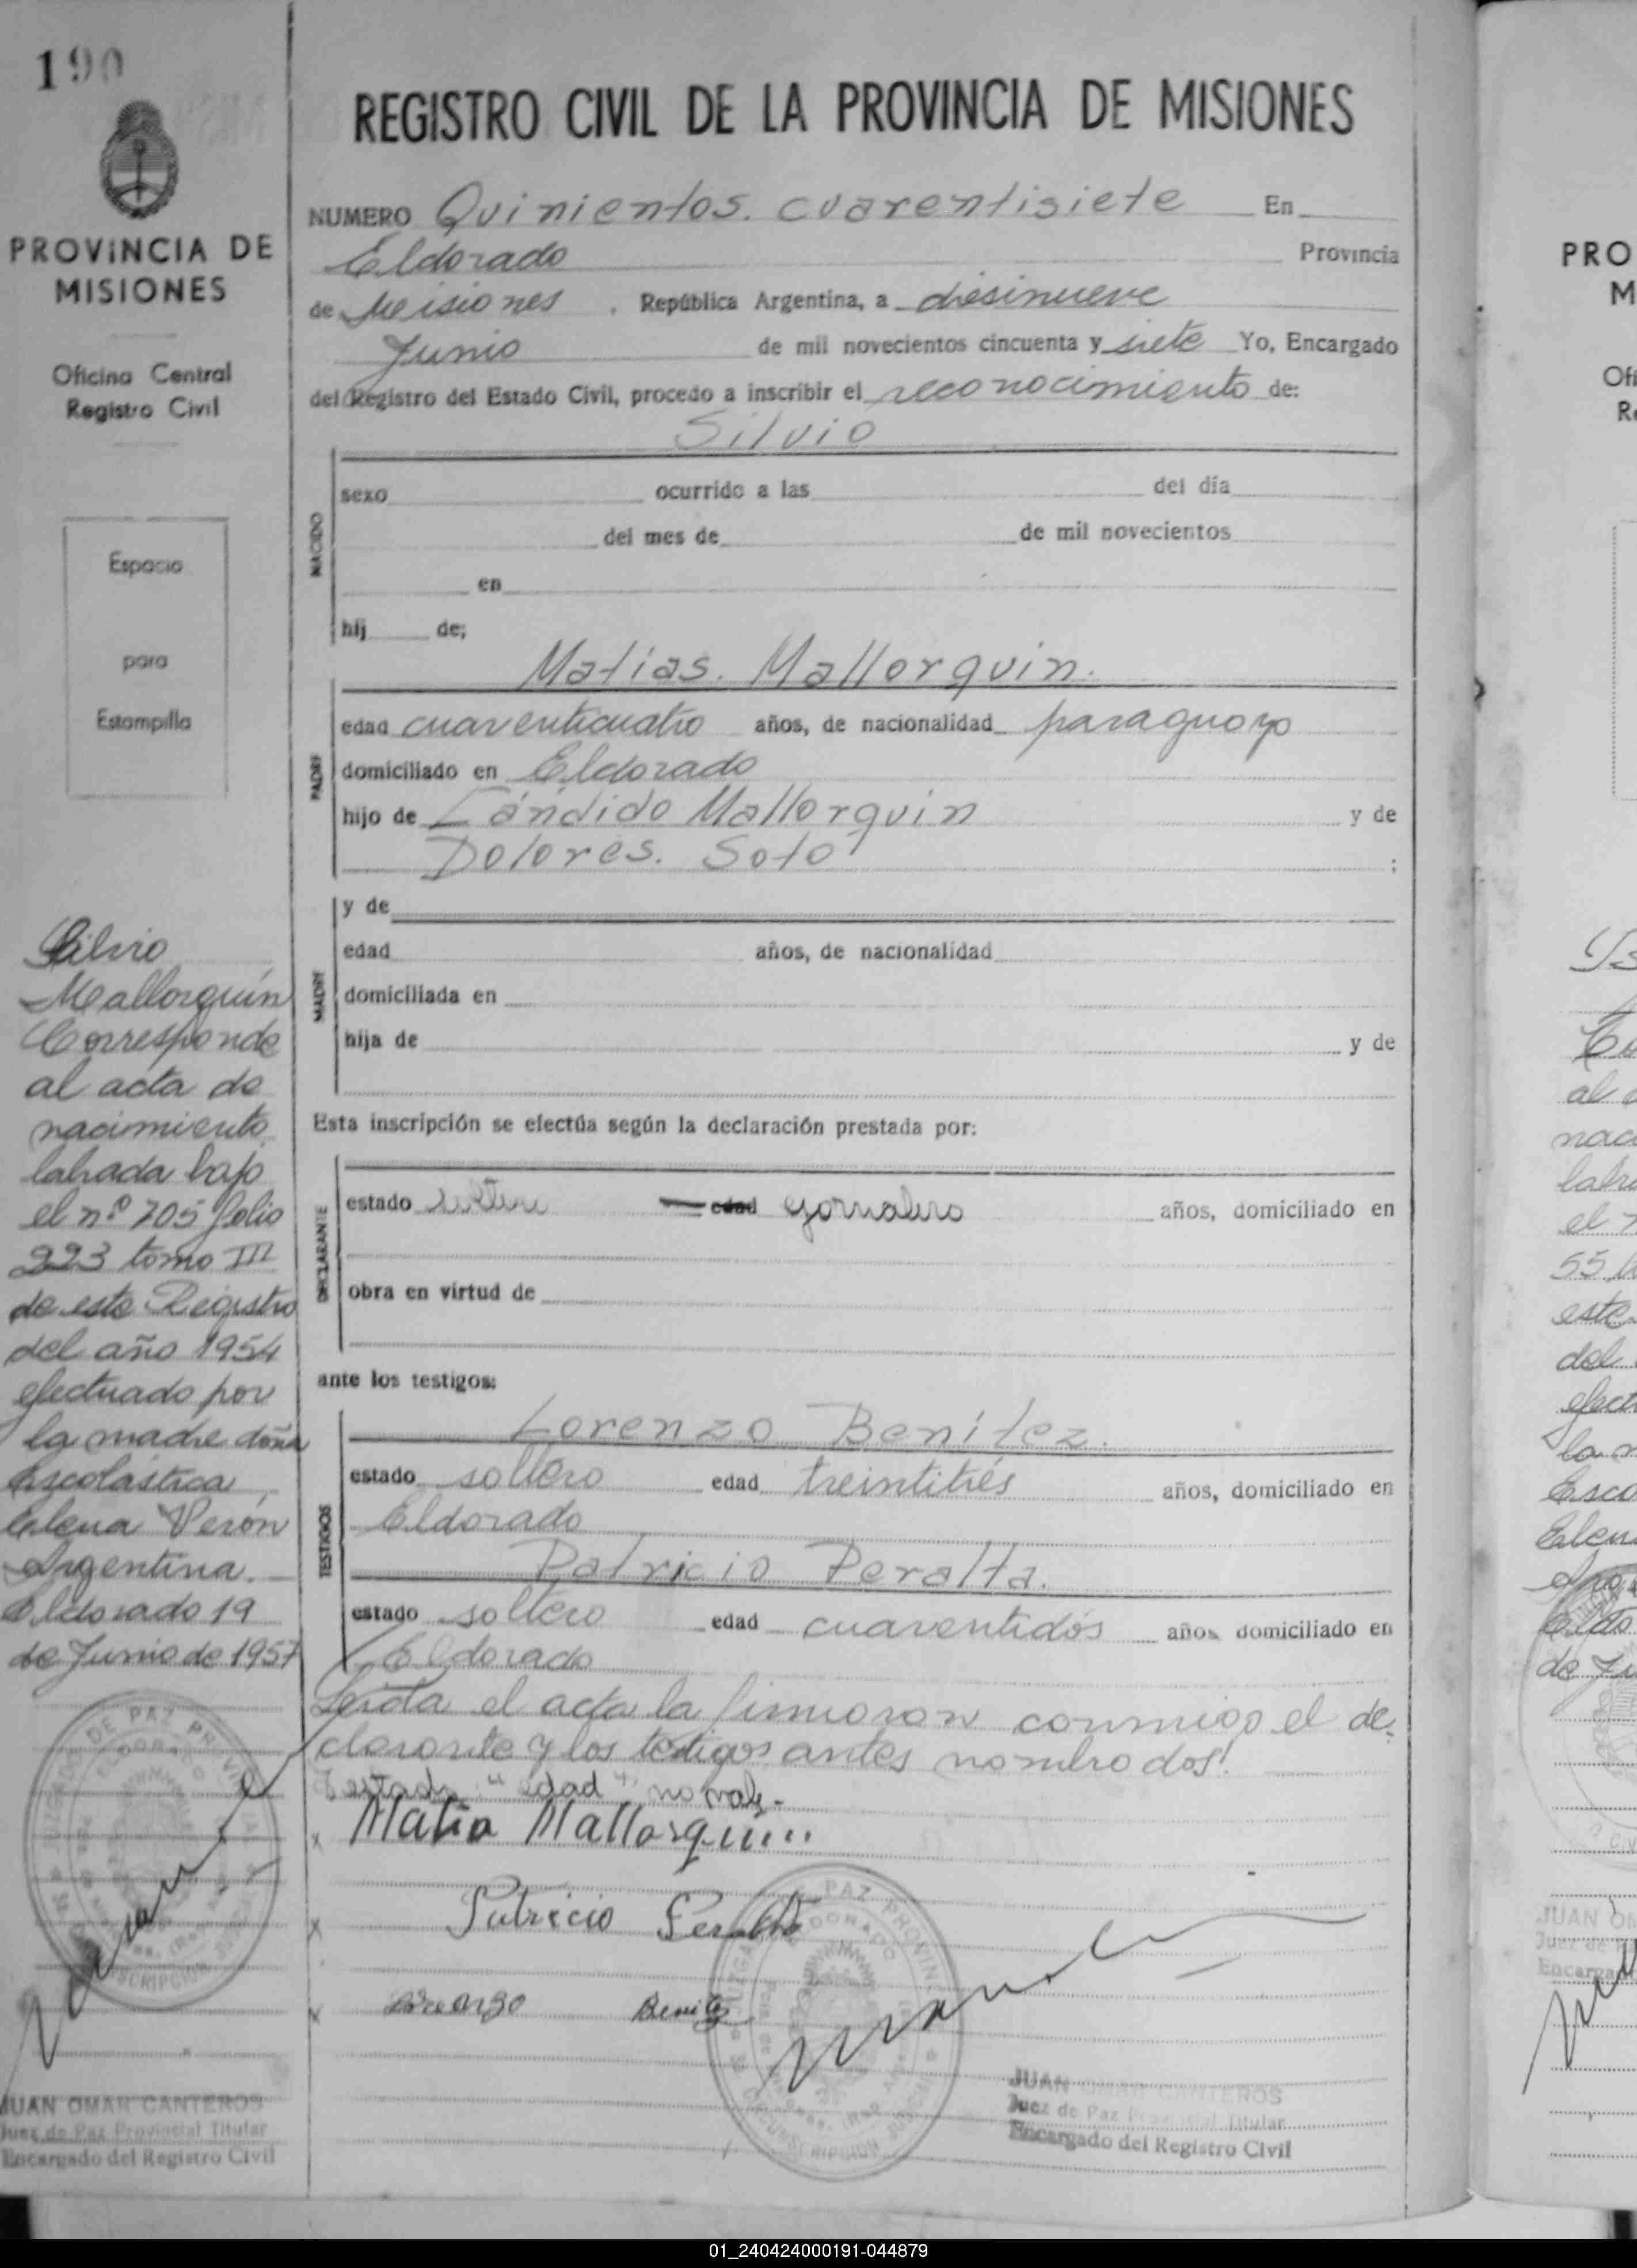 190
PROVINCIA DE
MISIONES
Oficina Central
Registro Civil
Espacio
para
Estampilla
Silvio
Mallorquín
Corresponde
al acta de
nacimiento
labrada bajo
el nº 705 folio
223 tomo III
de este Registro
del año 1954
efectuado por
la madre doña
Escolástica
Elena Verón
Argentina.
Eldorado 19
de Junio de 1957
JUAN OMAR CANTEROS
Juez de Paz Provincial Titular
Encargado del Registro Civil
REGISTRO CIVIL DE LA PROVINCIA DE MISIONES
NUMERO Quinientos. cuarentisiete En
Eldorado Provincia
de Misiones , República Argentina, a diesinueve
Junio de mil novecientos cincuenta y siete Yo, Encargado
del Registro del Estado Civil, procedo a inscribir el reconocimiento de:
Silvio
NACIDO
sexo ocurrido a las del día
del mes de de mil novecientos
en
hij de;
Matías. Mallorquin.
PADRE
edad cuarenticuatro años, de nacionalidad paraguayo
domiciliado en Eldorado
hijo de Cándido Mallorquin y de
Dolores. Soto ;
MADRE
y de
edad años, de nacionalidad
domiciliada en
hija de y de
Esta inscripción se efectúa según la declaración prestada por:
DECLARANTE
estado soltero edad Jornalero años, domiciliado en
obra en virtud de
ante los testigos:
TESTIGOS
Lorenzo Benítez.
estado soltero edad treintitrés años, domiciliado en
Eldorado
Patricio Peralta.
estado soltero edad cuarentidós años domiciliado en
Eldorado
Leída el acta la firmaron conmigo el de-
clarante y los testigos antes nombrados!
Testado "edad" no vale.-
x Matia Mallorquin
x Patricio Peralta
x Lorenzo Benitez
JUAN OMAR CANTEROS
Juez de Paz Provincial Titular
Encargado del Registro Civil
01_240424000191-044879